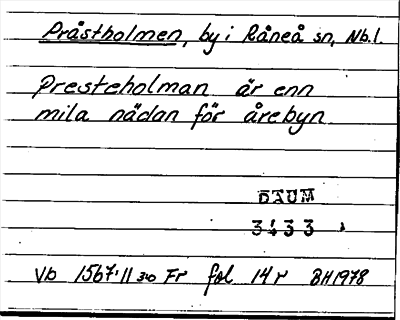 Prästholmen, by i Råneå sn, Nb.l.
Presteholman är enn
mila nädan för årebyn
DAUM
3433
Vb 1567:11 Fr fol 14 r BH 1978